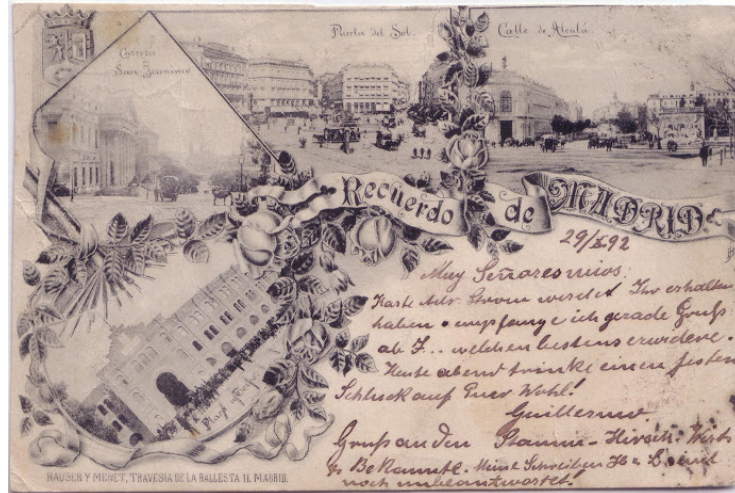 Carrera
de
San Jeronimo
Puerta del Sol.
Calle de Alcalá.
Recuerdo de MADRID
29/X 92
Muy Señores mios.
Karte Adr. werdet Ihr erhalten
haben. empfange ich gerade Gruß
ab Z.. welchen bestens erwidere.
Heute abend trinke einen festen
Schluck auf Euer Wohl!
Guillermo
Gruß an den Stamm- Hirsch- Wirth
& Bekannte. Meine Schreiben
noch unbeantwortet!
HAUSER Y MENET, TRAVESIA DE LA BALLESTA 11. MADRID.